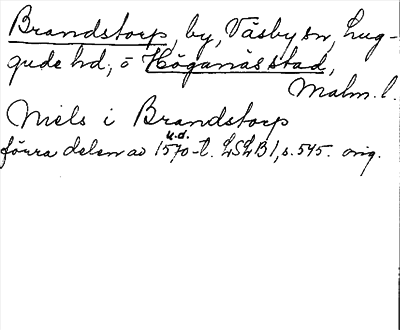 Brandstorp, by, Väsby sn, Lug-
gude hd, ö Höganäs stad,
Malm. l.
Niels i Brandstorp
u.d.
förra delen av 1570-t. LSLB 1, s. 545. orig.